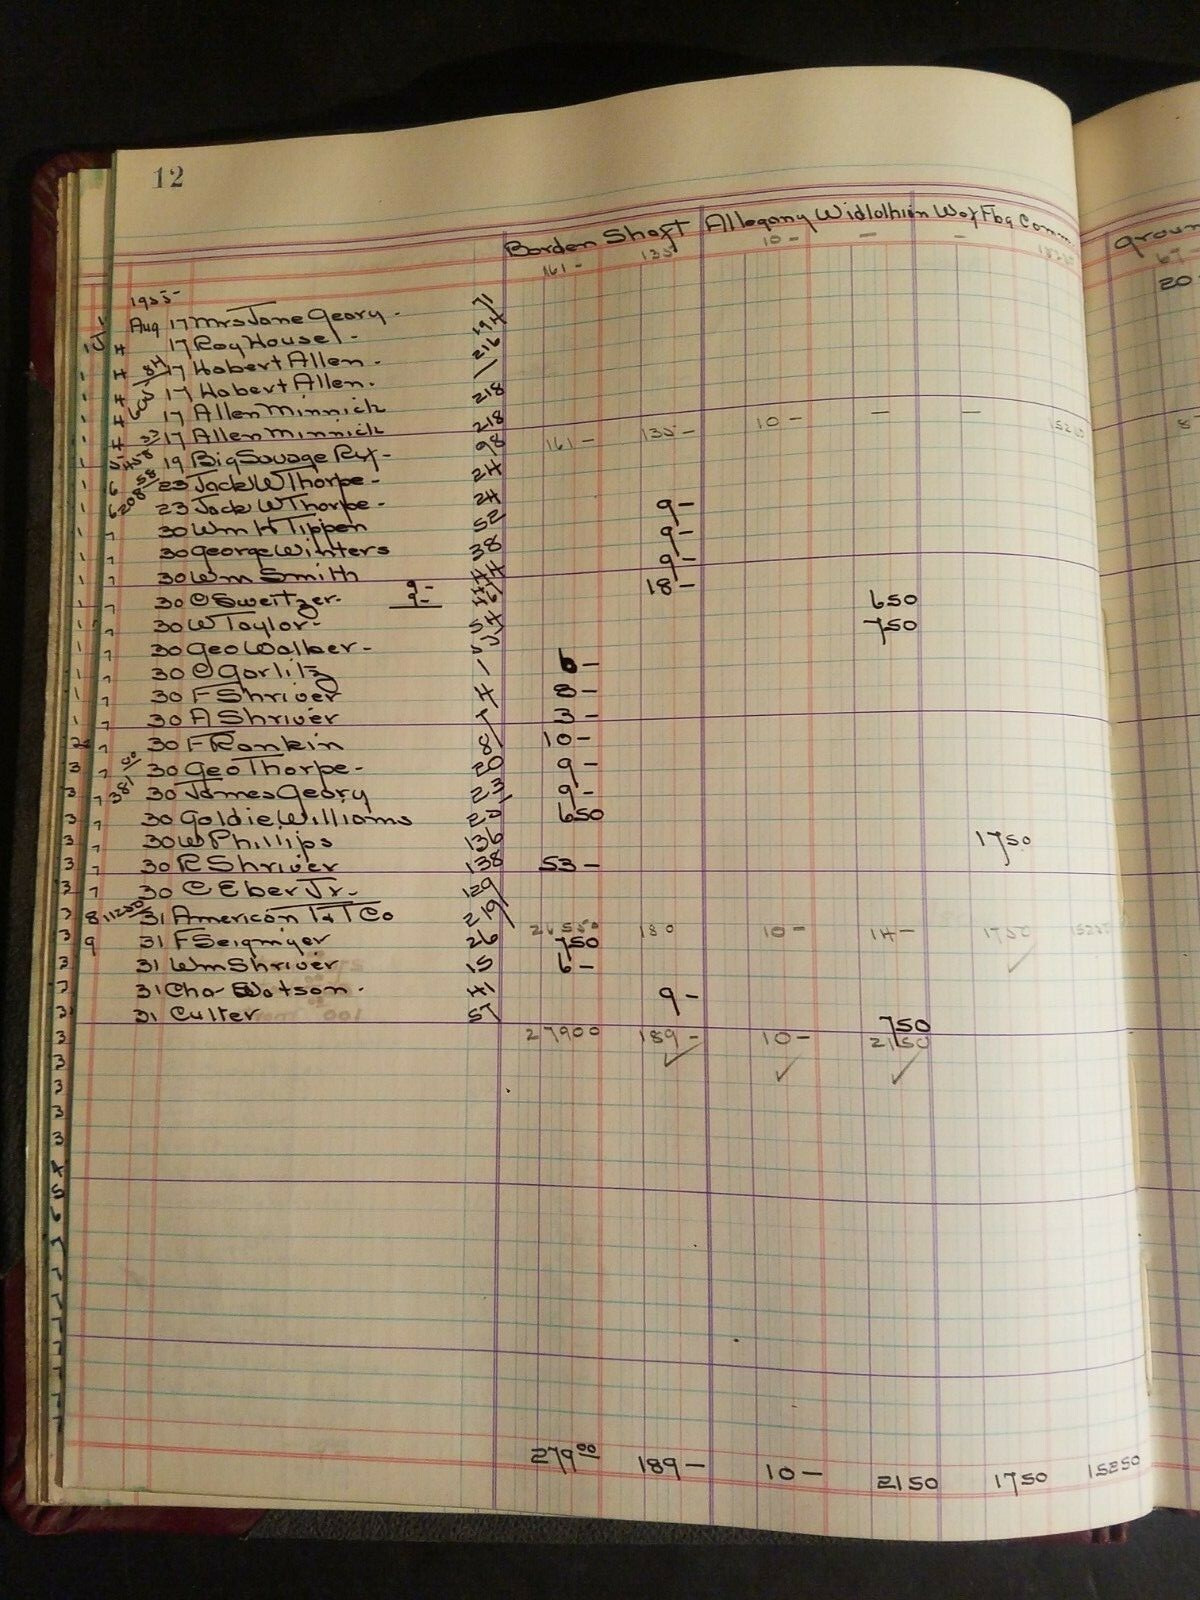 12
Borden Shaft Allegany Widlothian Wox Fbg Comm Groun
161- 135 10- - - 67
1955-
20
Aug 17 Mrs Jane Geary - 71
17 Roy House - 194
17 Hobert Allen - 216
17 Hobert Allen - 1
17 Allen Minnick 218
17 Allen Minnick 218 161- 135- 10- - -
19 Big Savage Rxf- 98
23 Jack W Thorpe - 24
23 Jack W Thorpe - 24 9-
30 Wm H Tippen 52 9-
30 George Winters 38 9-
30 Wm Smith 44 18-
30 C Sweitzer- 9- 9- 650
30 W Taylor- 54 750
30 Geo Walker-
30 C Gorlitz 1 6-
30 F Shriver 4 8-
30 A Shriver 7 3-
30 F Rankin 8 10-
30 Geo Thorpe- 20 9-
30 James Geary 23 9-
30 Goldie Williams 25 650
30 W Phillips 136 1750
30 R Shriver 138 53-
30 C Eber Jr- 129
8 11250 31 American T&T Co 219
26550 180 10- 14- 1750
9 31 F Seigmyer 26 750
31 Wm Shriver 15 6-
31 Cha- Watson- 41 9-
31 Culter 57 750
27900 189- 10- 2150
279 00 189- 10- 2150 1750 15250